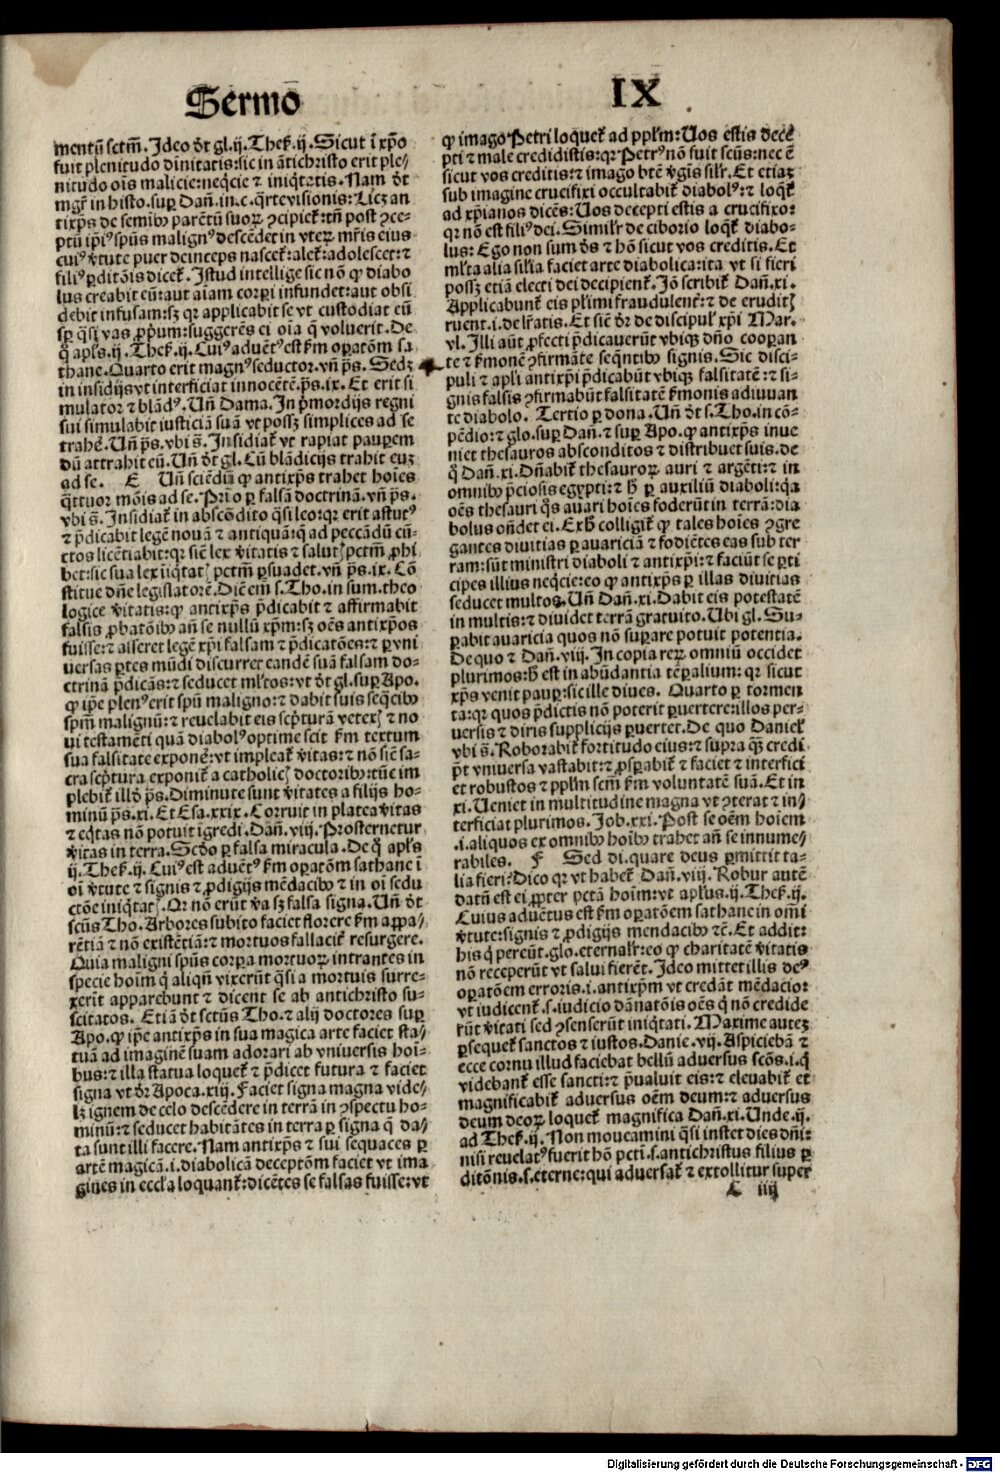 Sermo IX
mentū sctm̄. Ideo dr̄ gl. ij. Thes̄. ij. Sicut ī xp̄o
fuit plenitudo diuinitatis: sic in āticḣristo erit ple/
nitudo oīs malicie: neq̄cie ⁊ iniq̄tatis. Nam dr̄
mgr̄ in histo. sup̱ Dañ. in. c. q̄rte visionis: Licꝫ an
tixp̄s de semībꝰ parētū suoꝝ ꝯcipiet̄: tn̄ post ꝯce-
ptū ip̄iꝰ spūs malignꝰ descēdet in vteꝝ mr̄is eius
cuiꝰ v̄tute puer deinceps nascet̄: alet̄: adolescet: ⁊
filiꝰ ꝑditōis dicet̄. Istud intellige sic nō ꝙ diabo
lus creabit eū: aut aīam corꝑi infundet: aut obsi
debit infusam: sꝫ qꝛ applicabit se vt custodiat eū
sꝑ q̄si vas ꝓpriū: suggerēs ei oīa q̄ voluerit. De
q̊ apl̄s. ij. Thes̄. ij. Cuiꝰ aduētꝰ est ẜm oꝑatōm sa
thane. Quarto erit magnꝰ seductor. vn̄ ps̄. Sedꝫ
in insidijs vt interficiat innocētē. ps̄. ix. Et erit si
mulator ⁊ blādꝰ. Un̄ Dama. In p̄mordijs regni
sui simulabit iusticiā suā vt possꝫ simplices ad se
trahē. Un̄ ps̄. vbi s̄. Insidiat̄ vt rapiat pauꝑem
dū attrahit eū. Un̄ dr̄ gl. Cū blādicijs trahit euꝫ
ad se. E Un̄ sciēdū ꝙ antixp̄s trahet hoīes
q̄ttuor mōis ad se. Pri⁰ o ꝑ falsā doctrinā. vn̄ ps̄.
vbi s̄. Insidiat̄ in abscōdito q̄si leo: qꝛ erit astutꝰ
⁊ p̄dicabit legē nouā ⁊ antiquā: q̄ ad peccādū cū-
ctos licētiabit: qꝛ sic̄ lex v̄itatis ⁊ salutꝭ pctm̄ ꝓhi
bet: sic sua lex iniq̄tatꝭ pctm̄ ꝑsuadet. vn̄ ps̄. ix. Cō
stitue dn̄e legislatorē. Dic̄ em̄ s. Tho. in sum. theo
logice v̄itatis: ꝙ antixp̄s p̄dicabit ⁊ affirmabit
falsis ꝓbatōibꝰ an̄ se nullū xp̄m: sꝫ oēs antixp̄os
fuisse: ⁊ asseret legē xp̄i falsam ⁊ p̄dicatōes: ⁊ ꝑ vni
uersas ꝑtes mūdi discurret eandē suā falsam do-
ctrinā p̄dicās: ⁊ seducet ml̄tos: vt dr̄ gl. sup̱ Apo.
ꝙ ip̄e plenꝰ erit spū maligno: ⁊ dabit suis seq̄cibꝰ
spm̄ malignū: ⁊ reuelabit eis sc̄pturā veterꝭ ⁊ no
ui testamēti quā diabolꝰ optime scit ẜm textum
sua falsitate exponē: vt impleat̄ v̄itas: ⁊ nō sic̄ sa-
cra sc̄ptura exponit̄ a catholicꝭ doctoribꝰ: tūc im
plebit̄ illd̄ ps̄. Diminute sunt v̄itates a filijs ho-
minū ps̄. xi. Et Esa. xxix. Corruit in platea v̄itas
⁊ eq̄tas nō potuit īgredi. Dañ. viij. Prosternetur
v̄itas in terra. Scd̄o ꝑ falsa miracula. De q̊ apl̄s
ij. Thes̄. ij. Cuiꝰ est aduētꝰ ẜm oꝑatōm sathane ī
oī v̄tute ⁊ signis ⁊ ꝓdigijs mēdacibꝰ ⁊ in oī sedu
ctōe iniq̄tatꝭ. Qꝛ nō erūt v̄a sꝫ falsa signa. Un̄ dr̄
sctūs Tho. Arbores subito faciet florere ẜm appa/
rētiā ⁊ nō existētiā: ⁊ mortuos fallacit̄ resurgere.
Quia maligni spūs corꝑa mortuoꝝ intrantes in
specie hoīm q̄ aliqn̄ vixerūt q̄si a mortuis surre-
xerit apparebunt ⁊ dicent se ab antichristo su-
scitatos. Etiā dr̄ sctūs Tho. ⁊ alij doctores sup̱
Apo. ꝙ ip̄e antixp̄s in sua magica arte faciet sta/
tuā ad imaginē suam adorari ab vniuersis hoī-
bus: ⁊ illa statua loquet̄ ⁊ p̄dicet futura ⁊ faciet
signa vt dr̄ Apoca. xiij. Faciet signa magna vide/
lꝫ ignem de celo descēdere in terrā in ꝯspectu ho-
minū: ⁊ seducet habitātes in terra ꝑ signa q̄ da/
ta sunt illi facere. Nam antixp̄s ⁊ sui sequaces ꝑ
artē magicā. i. diabolicā deceptōm faciet vt ima
gines in eccl̄a loquant̄: dicētes se falsas fuisse: vt
ꝙ imago Petri loquet̄ ad ppl̄m: Uos estis dece
pti ⁊ male credidistis: qꝛ Petrꝰ nō fuit scūs: nec ē
sicut vos creditis: ⁊ imago btē v̄gis sil̄r. Et etiaꝫ
sub imagine crucifixi occultabit̄ diabolꝰ: ⁊ loq̄t̄
ad xp̄ianos dicēs: Uos decepti estis a crucifixo:
qꝛ nō est filiꝰ dei. Simil̄r de ciborio loq̄t̄ diabo-
lus: Ego non sum ds̄ ⁊ hō sicut vos creditis. Et
ml̄ta alia sil̄ia faciet arte diabolica: ita vt si fieri
possꝫ etiā electi dei decipient̄. Jō scribit̄ Dañ. xi.
Applicabunt̄ eis pl̄imi fraudulent̄: ⁊ de eruditꝭ
ruent. i. de lr̄atis. Et sic̄ dr̄ de discipul̄ xp̄i Mar.
vl. Illi aūt ꝓfecti p̄dicauerūt vbiqꝫ dn̄o cooꝑan
te ⁊ ẜmonē ꝯfirmāte seq̄ntibꝰ signis. Sic disci-
puli ⁊ apl̄i antixp̄i p̄dicabūt vbiqꝫ falsitatē: ⁊ si-
gnis falsis ꝯfirmabūt falsitatē ẜmonis adiuuan
te diabolo. Tertio ꝑ dona. Un̄ dr̄ s. Tho. in cō-
pēdio: ⁊ glo. sup̱ Dañ. ⁊ sup̱ Apo. ꝙ antixp̄s inue
niet thesauros absconditos ⁊ distribuet suis. de
q̊ Dañ. xi. Dn̄abit̄ thesauroꝝ auri ⁊ argēti: ⁊ in
omnibꝰ p̄ciosis egypti: ⁊ h̄ ꝑ auxiliū diaboli: q̄a
oēs thesauri q̊s auari hoīes foderūt in terrā: dia
bolus on̄det ei. Ex h̄ colligit̄ ꝙ tales hoīes ꝯgre
gantes diuitias ꝑ auariciā ⁊ fodiētes eas sub ter
ram: sūt ministri diaboli ⁊ antixp̄i: ⁊ faciūt se ꝑti
cipes illius neq̄cie: eo ꝙ antixp̄s ꝑ illas diuitias
seducet multos. Un̄ Dañ. xi. Dabit eis potestatē
in multis: ⁊ diuidet terrā gratuito. Ubi gl. Su-
ꝑabit auaricia quos nō suꝑare potuit potentia.
De quo ⁊ Dañ. viij. In copia reꝝ omniū occidet
plurimos: h̄ est in abūdantia tēꝑalium: qꝛ sicut
xp̄s venit pauꝑ: sic ille diues. Quarto ꝑ tormen
ta: qꝛ quos p̄dictis nō poterit ꝑuertere: illos per-
uersis ⁊ diris supplicijs ꝑuertet. De quo Daniel̄
vbi s̄. Roborabit̄ fortitudo eius: ⁊ supra qꝫ credi
pt̄ vniuersa vastabit: ⁊ ꝓsꝑabit̄ ⁊ faciet ⁊ interfici
et robustos ⁊ ppl̄m scm̄ ẜm voluntatē suā. Et in
xi. Ueniet in multitudine magna vt ꝯterat ⁊ in/
terficiat plurimos. Job. xxi. Post se oēm hoīem
.i. aliquos ex omnibꝰ hoībꝰ trahet an̄ se innume-
rabiles. F Sed di. quare deus ꝑmittit ta-
lia fieri: Dico qꝛ vt habet̄ Dañ. viij. Robur autē
datū est ei ꝓpter pctā hoīm: vt apl̄us. ij. Thes̄. ij.
Cuius aduētus est ẜm oꝑatōem sathane in om̄i
v̄tute: signis ⁊ ꝓdigijs mendacibꝰ ⁊c̄. Et addit:
his q̄ pereūt. glo. eternal̄r: eo ꝙ charitatē v̄itatis
nō receperūt vt salui fierēt. Ideo mittet illis deꝰ
oꝑatōem erroris. i. antixp̄m vt credāt mēdacio:
vt iudicent̄. s. iudicio dānatōis oēs q̄ nō credide
rūt v̄itati sed ꝯsenserūt iniq̄tati. Maxime auteꝫ
ꝑsequet̄ sanctos ⁊ iustos. Danie. vij. Aspiciebā ⁊
ecce cornu illud faciebat bellū aduersus scōs. i. q̄
videbant̄ esse sancti: ⁊ p̄ualuit eis: ⁊ eleuabit̄ et
magnificabit̄ aduersus oēm deum: ⁊ aduersus
deum deoꝝ loquet̄ magnifica Dañ. xi. Unde. ij.
ad Thes̄. ij. Non moueamini q̄si instet dies dn̄i:
nisi reuelatꝰ fuerit hō pcti. s. antichristus filius ꝑ
ditōnis. s. eterne: qui aduersat̄ ⁊ extollitur super
L iiij
Digitalisierung gefördert durch die Deutsche Forschungsgemeinschaft - DFG